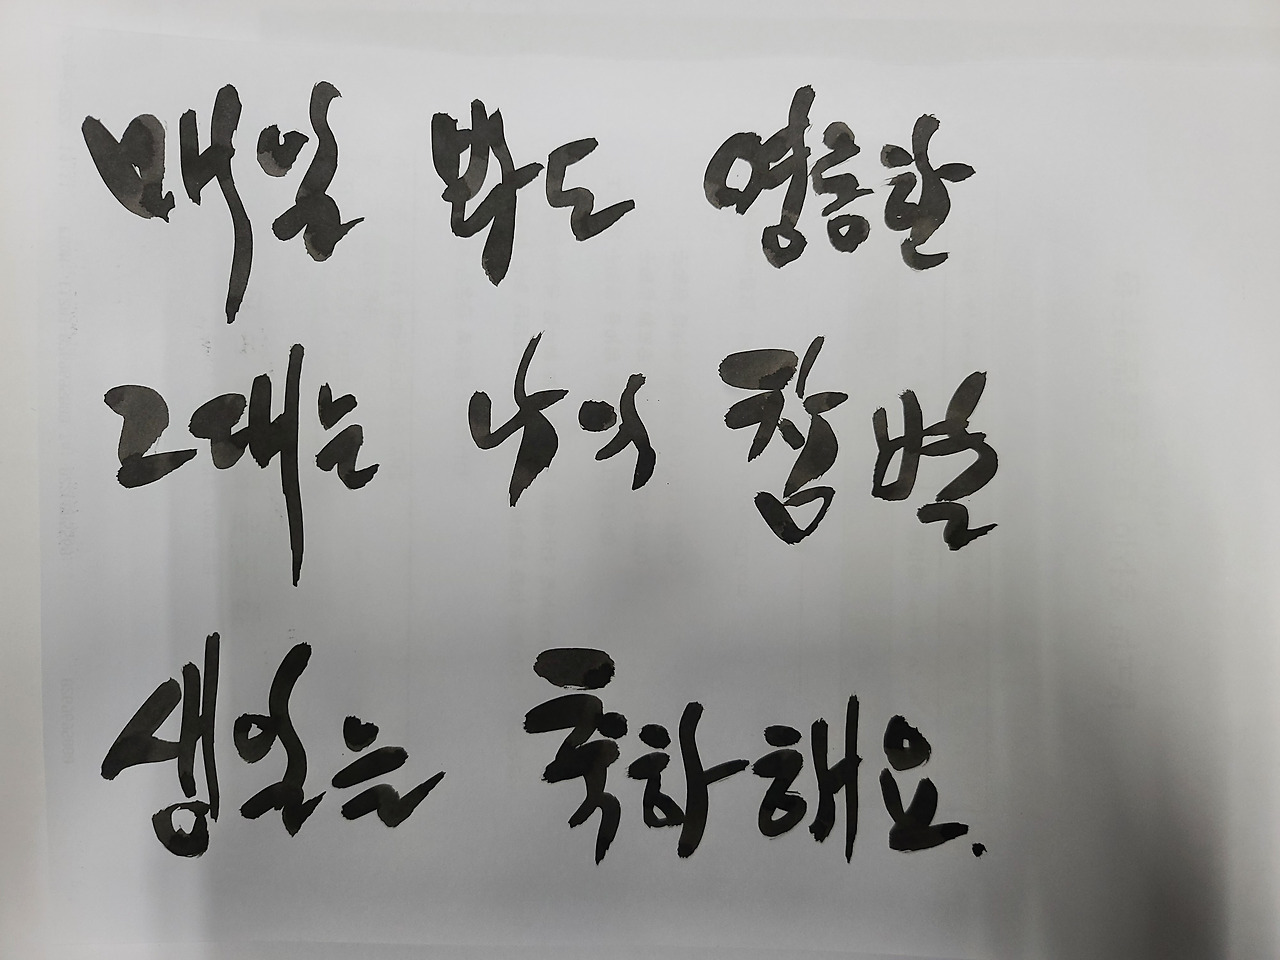 매일 봐도 영롱한
그대는 나의 참별
생일은 축하해요.